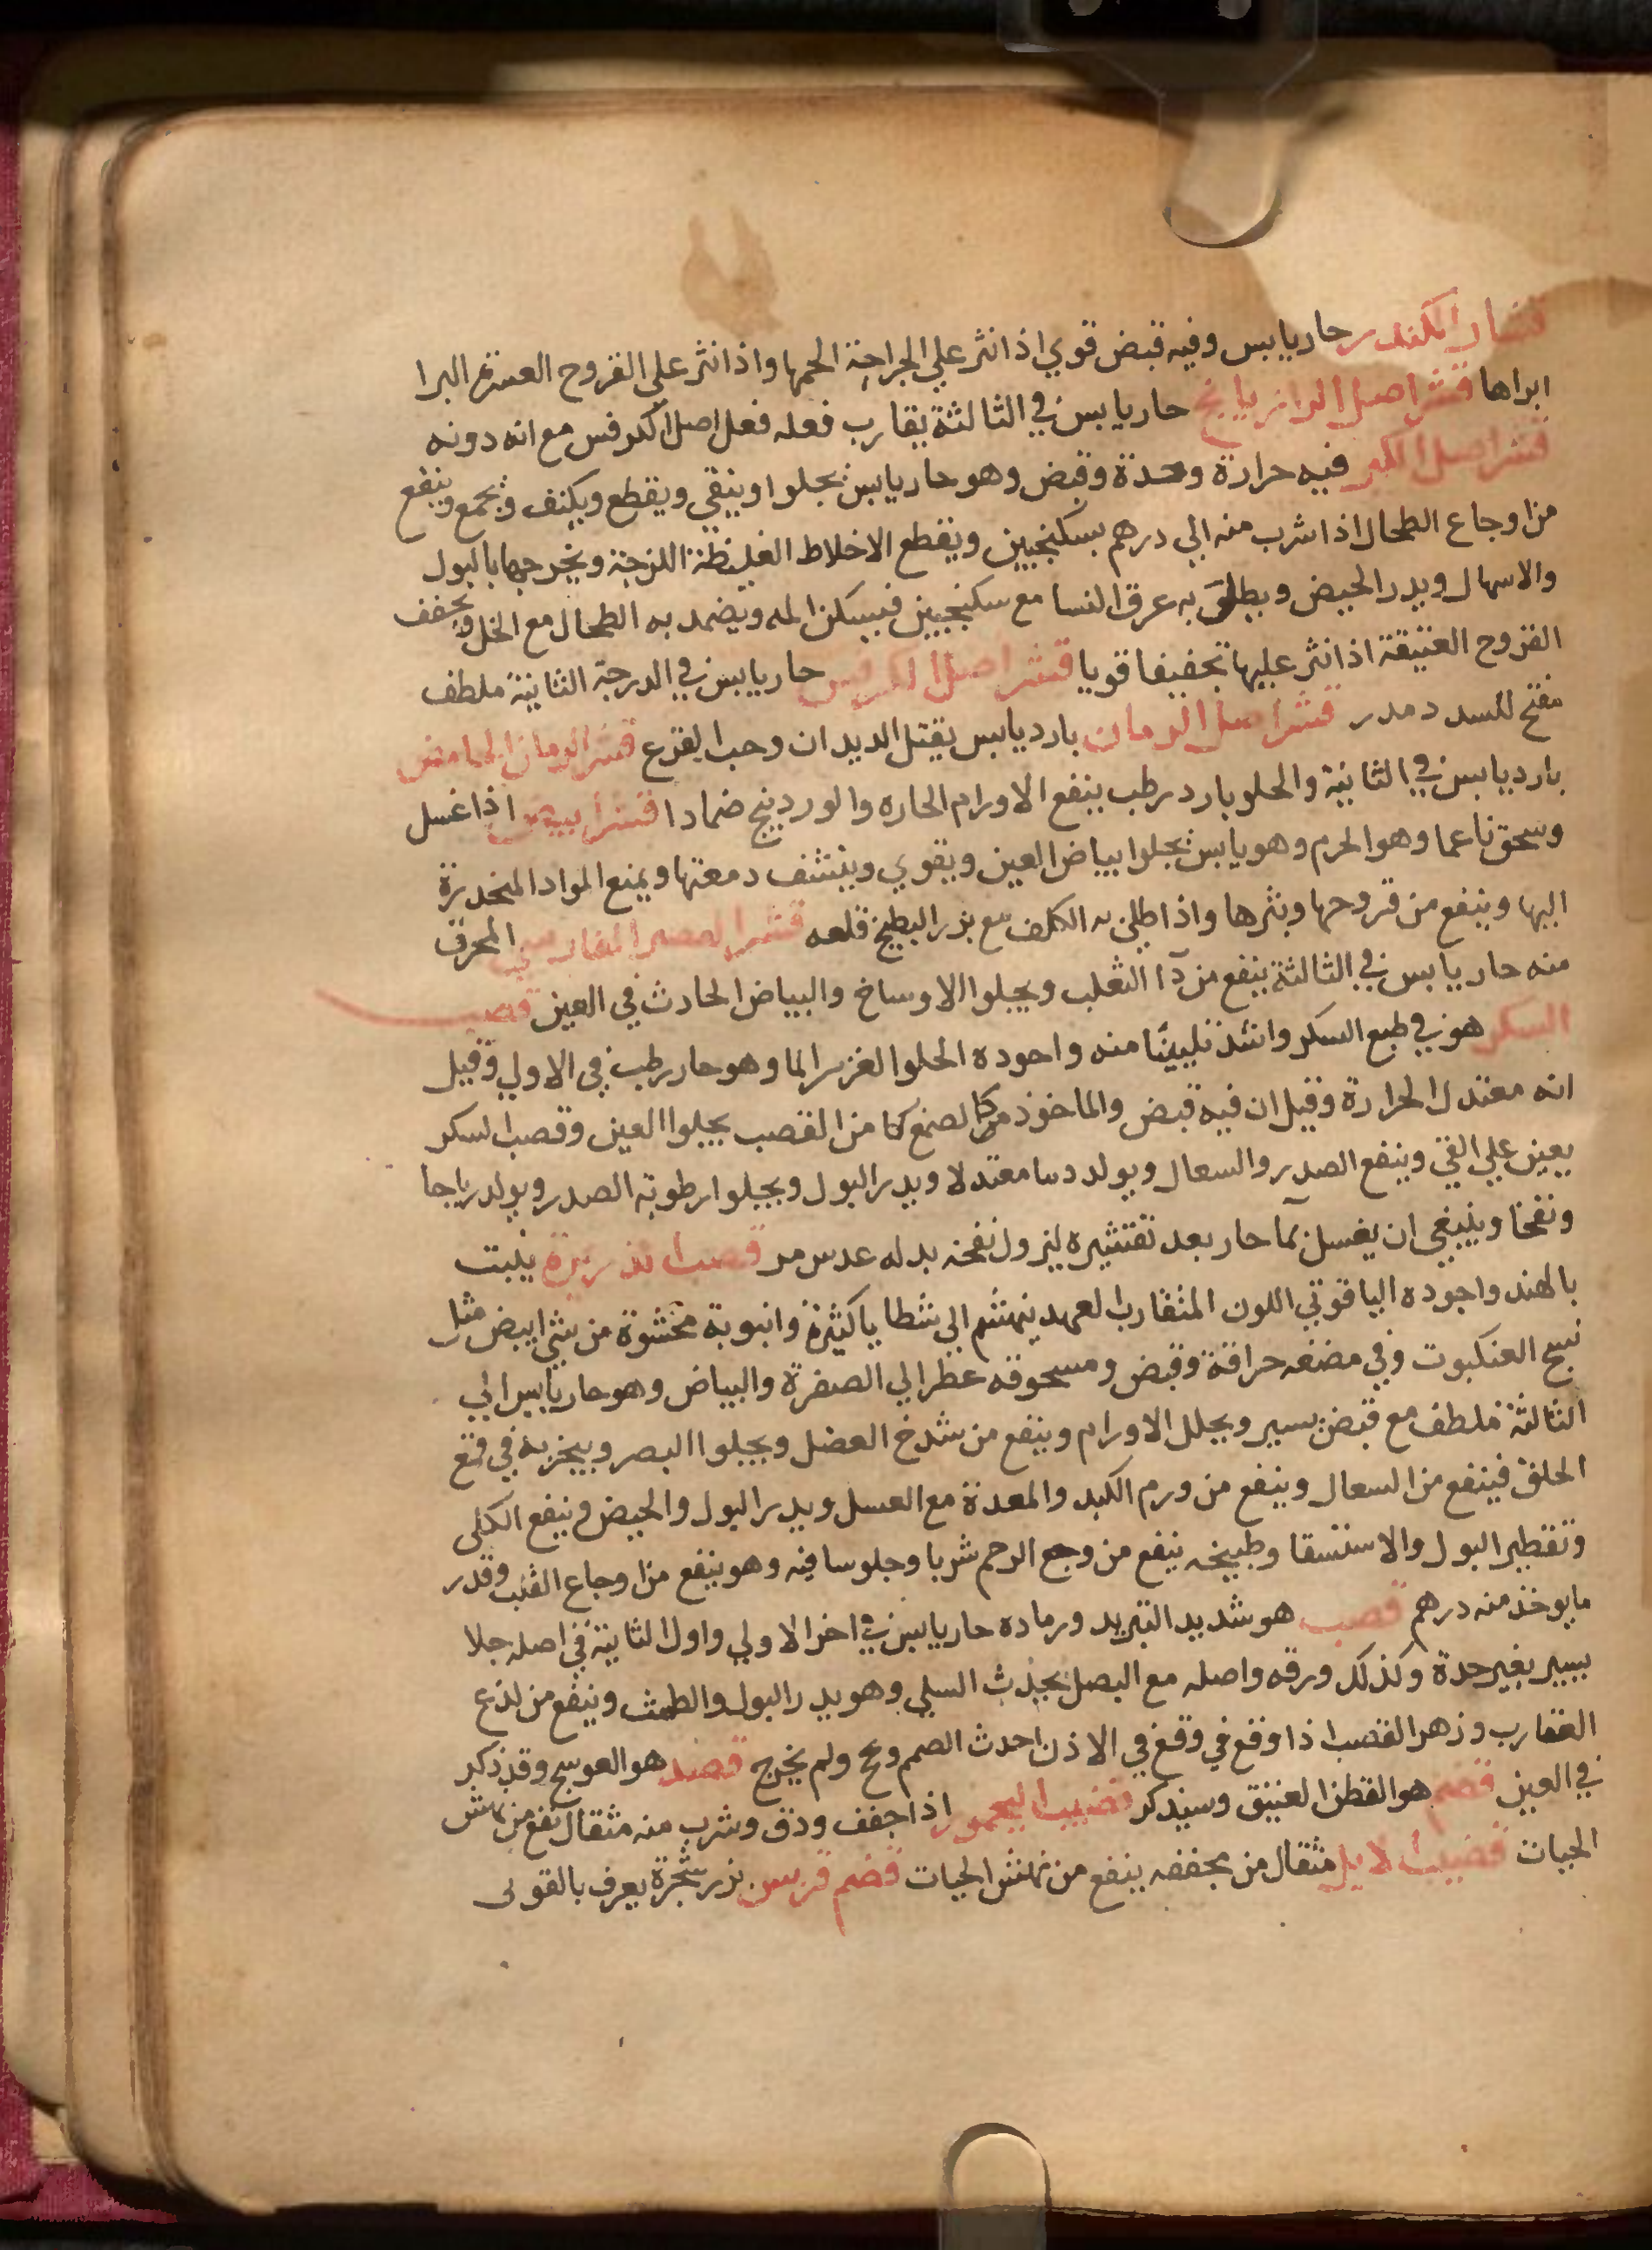 قشار الكندر حار يابس وفيه قبض قوي اذا نثر علي الجراحة الحمها واذا نثر على القروح العسرة البرا
ابراها قشر اصل الرازيانج حار يابس في الثالثة يقارب فعله فعل اصل الكرفس مع انه دونه
قشر اصل الكبر فيه حرارة وحدة وقبض وهو حار يابس يجلوا وينقي ويقطع ويكثف ويجمع وينفع
من اوجاع الطحال اذا شرب منه الي درهم بسكنجبين ويقطع الاخلاط الغليظة اللزجة ويخرجها بالبول
والاسهال ويدر الحيض ويطلى به عرق النسا مع سكنجبين فيسكن المه ويضمد به الطحال مع الخل ويجفف
القروح العتيقة اذا نثر عليها تجفيفا قويا قشر اصل الكرفس حار يابس في الدرجة الثانية ملطف
مفتح للسدد مدر قشر اصل الرمان بارد يابس يقتل الديدان وحب القرع قشر الرمان الحامض
بارد يابس في الثانية والحلو بارد رطب ينفع الاورام الحاره والوردينج ضمادا قشر البيض اذا غسل
وسحق ناعما وهو الحرم وهو يابس يجلوا بياض العين ويقوي وينشف دمعتها ويمنع المواد المنحدرة
اليها وينفع من قروحها وبثرها واذا طلي به الكلف مع بزر البطيخ قلعه قشر القصب الفارسي المحرق
منه حار يابس في الثالثة ينفع من دآ الثعلب ويجلوا الاوساخ والبياض الحادث في العين قصب
السكر هو في طبع السكر واشد تليينا منه واجوده الحلو الغزير الما وهو حار رطب في الاولي وقيل
انه معتدل الحرارة وقيل ان فيه قبض والماخوذ من كالصمغ كا من القصب يجلوا العين وقصب السكر
يعين علي القي وينفع الصدر والسعال ويولد دما معتدلا ويدر البول ويجلوا رطوبة الصدر ويولد رياحا
ونفخا وينبغي ان يغسل بمآ حار بعد تقشيره ليزول نفخه بدله عدس مر قصب الذريرة ينبت
بالهند واجوده الياقوتي اللون المتقارب العهد ينهشم الي شظايا كثيرة وانبوبة محشوة من شي ابيض مثل
نسج العنكبوت وفي مضغه حرافة وقبض ومسحوقه عطر الي الصفرة والبياض وهو حار يابس الي
الثالثة ملطف مع قبض يسير ويحلل الاورام وينفع من شدخ العضل ويجلوا البصر ويبخر به في قمع
الحلق فينفع من السعال وينفع من ورم الكبد والمعدة مع العسل ويدر البول والحيض وينفع الكلي
وتقطير البول والاستسقا وطبيخه ينفع من وجع الرحم شربا وجلوسا فيه وهو ينفع من اوجاع القلب وقدر
ما يوخذ منه درهم قصب هو شديد التبريد ورماده حار يابس في اخر الاولي واول الثانية في اصله جلا
يسير بغير حدة وكذلك ورقه واصله مع البصل يجذب السلي وهو يدر البول والطمث وينفع من لذع
العقارب وزهر القصب اذا وقع في وقع في الاذن احدث الصمم ولم يخرج قصد هو العوسج وقد ذكر
في العين قضم هو القطن العتيق وسيذكر قضيب اليحمور اذا جفف ودق وشرب منه مثقال نفع من نهش
الحيات قضيب الايل مثقال من مجففه ينفع من نهش الحيات قضم قريس بزر شجرة يعرف بالقولى